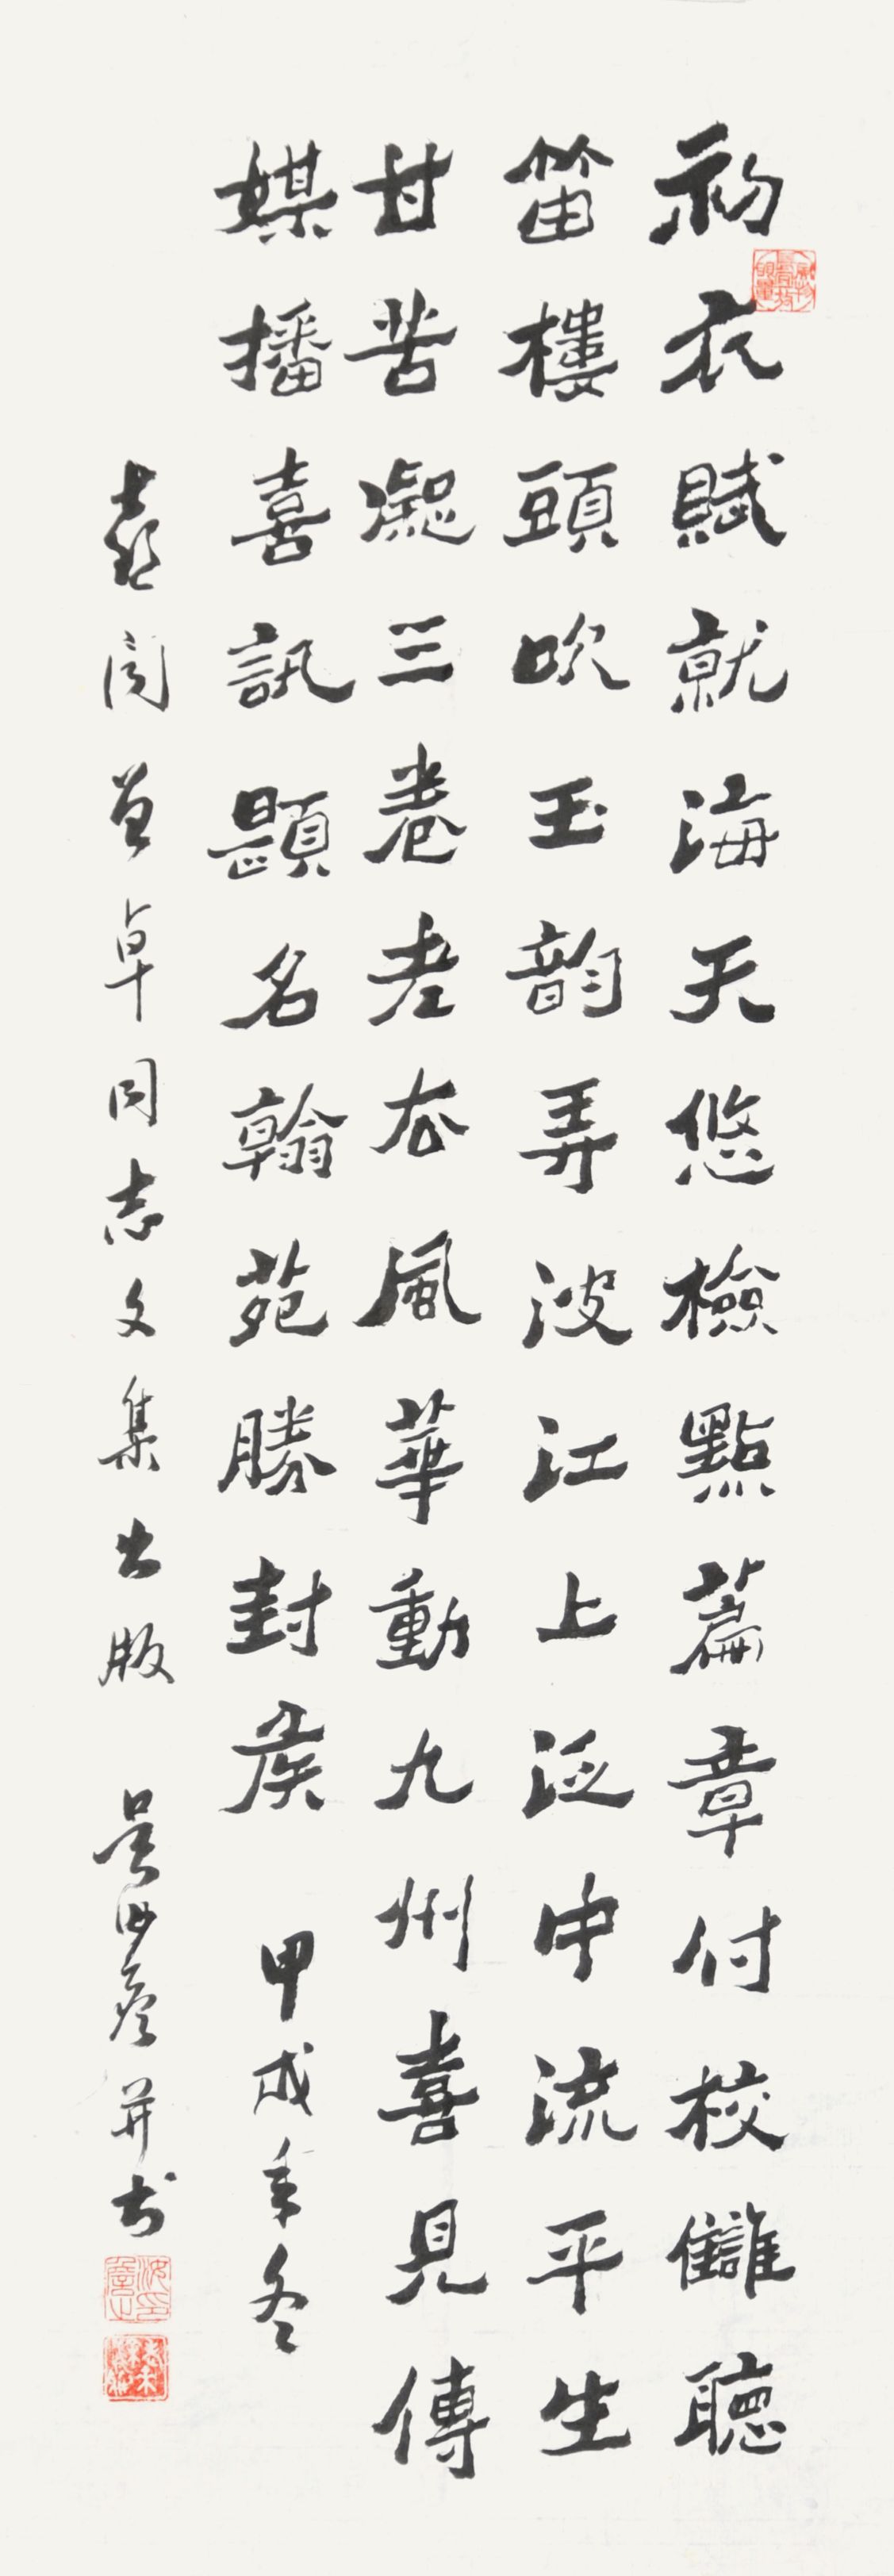 初衣賦就海天悠檢點篇章付校讎聽
笛樓頭吹玉韵弄波江上泛中流平生
甘苦凝三卷老去風華動九州喜見傳
媒播喜訊題名翰苑勝封侯 甲戌年冬
喜聞曾卓同志文集出版 吳 并书